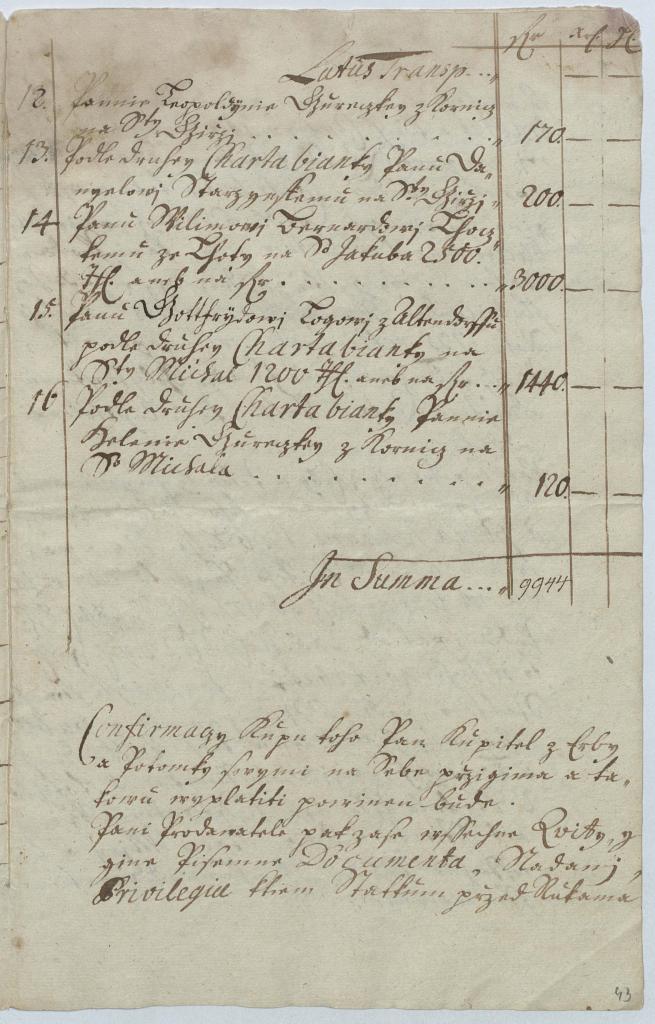 fl. xr. d.
Latus Transp...
12. Pannie Leopoldynie Gureczkey z Kornicz
na Sty Girzi . . . 170.
13. Podle druhey Charta bianky Panu Da-
nyelowi Starzynskemu na Sty Girzi 200.
14 Panu Wilimowi Bernardowi Thocz-
kemu ze Thoty na S Jakuba 2500.
Thl. aneb na fl. . . . 3000.
15. Panu Gottfrydowi Logowi z Altendorffu
podle druhey Charta bianky na
Sty Michal 1200 Thl. aneb na fl. . . 1440.
16 Podle druhey Charta bianky Pannie
Helenie Gureczkey z Kornicz na
S Michala . . . 120.
In Summa ... 9944
Confirmaczy Kupu toho Pan Kupitel z Erby
a Potomky swymi na Sebe przigima a ta-
kowu wyplatiti powinen bude.
Pani Prodawatele pak zase wssechne Qvitty, y
gine Pisemne Documenta, Nadani,
Privilegia ktem Statkum przed Rukama
43